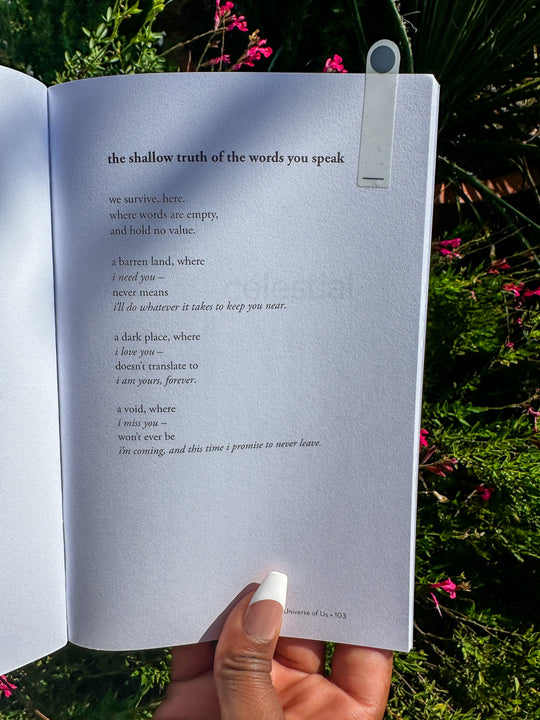 the shallow truth of the words you speak
we survive, here.
where words are empty,
and hold no value.
a barren land, where
i need you –
never means
i'll do whatever it takes to keep you near.
a dark place, where
i love you –
doesn't translate to
i am yours, forever.
a void, where
i miss you –
won't ever be
i'm coming, and this time i promise to never leave.
Universe of Us • 103